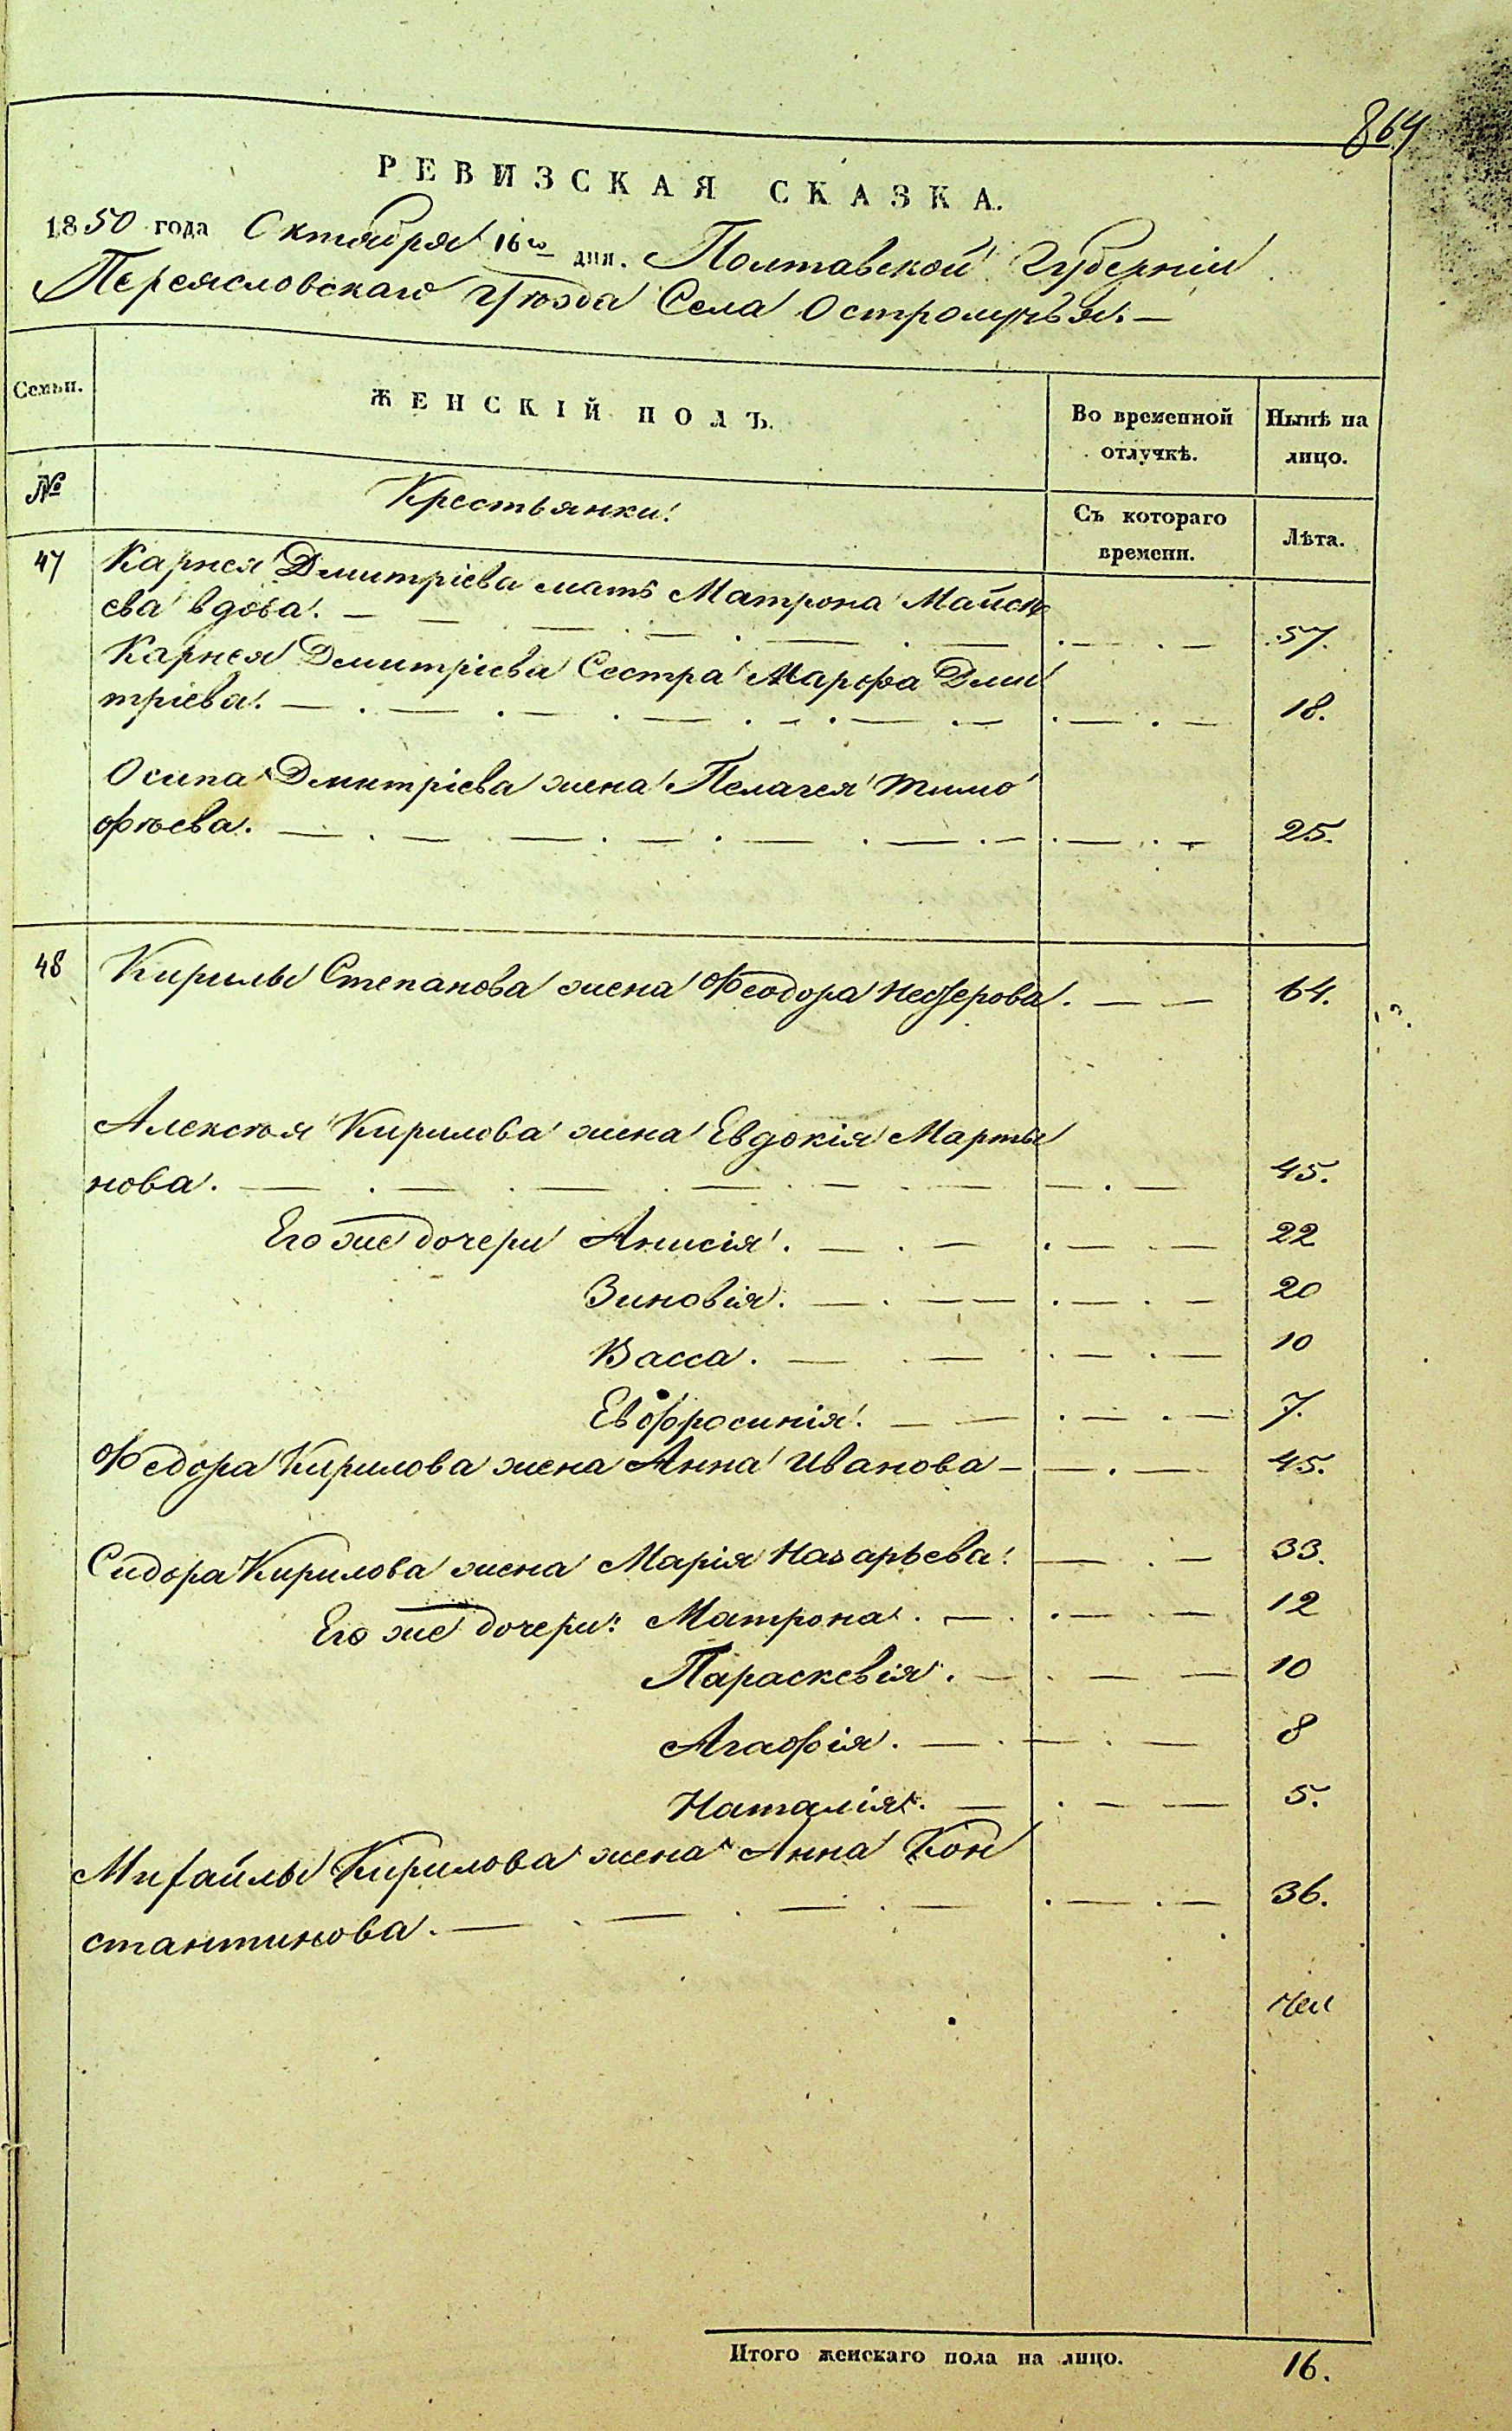 864
РЕВИЗСКАЯ СКАЗКА.
1850 года Октября 16го дня. Полтавской Губерніи
Переясловскаго Уѣзда Села Остролучья. —
Семьи. ЖЕНСКІЙ ПОЛЪ. Во временной отлучкѣ. Нынѣ на лицо.
№ Крестьянки. Съ котораго времени. Лѣта.
47 Карнея Дмитріева мать Матрона Майсѣ
ева вдова. 57.
Карнея Дмитріева Сестра Марфа Дми
тріева. 18.
Осипа Дмитріева жена Пелагея Тимо
фѣева. 25.
48 Кирилы Степанова жена Феодора 64.
Алексѣя Кирилова жена Евдокія Марты
нова. 45.
Его же дочери Анисія. 22
Зиновія. 20
Васса. 10
Евфросинія. 7.
Федора Кирилова жена Анна Иванова 45.
Сидора Кирилова жена Марія Назарьева. 33.
Его же дочери: Матрона. 12
Параскевія. 10
Агафія. 8
Наталія. 5.
Михайлы Кирилова жена Анна Кон
стантинова. 36.
Итого женскаго пола на лицо. 16.